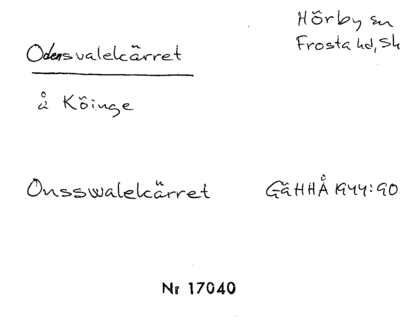 Hörby sn
Frosta hd, Sk
Odensvalekärret
å Köinge
Onsswalekärret GäHHÅ 1944:90
Nr 17040